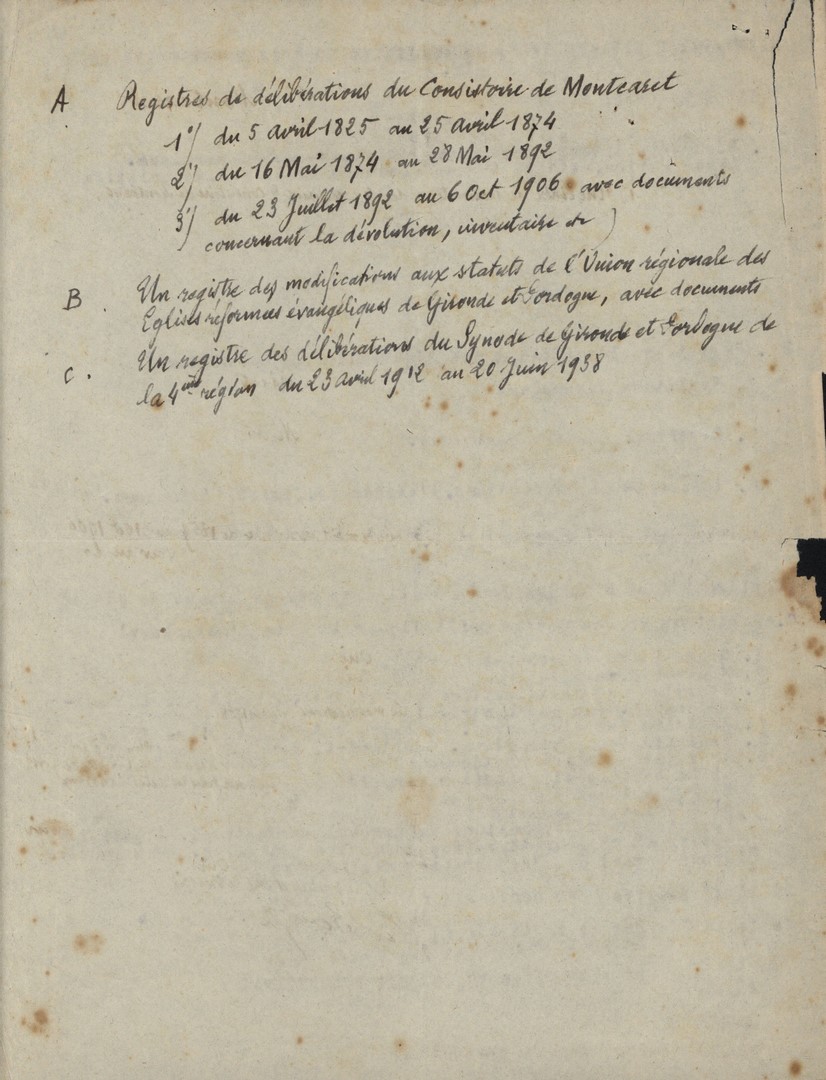 A Registres de délibérations du Consistoire de Montcaret
1°/ du 5 avril 1825 au 25 avril 1874
2°/ du 16 Mai 1874 au 28 Mai 1892
3°/ du 23 Juillet 1892 au 6 Oct 1906 avec documents
concernant la dévolution, inventaire etc )
B. Un registre des modifications aux statuts de l'Union régionale des
Eglises réformées évangéliques de Gironde et Dordogne, avec documents
C. Un registre des délibérations du Synode de Gironde et Dordogne de
la 4me région du 23 avril 1912 au 20 Juin 1938